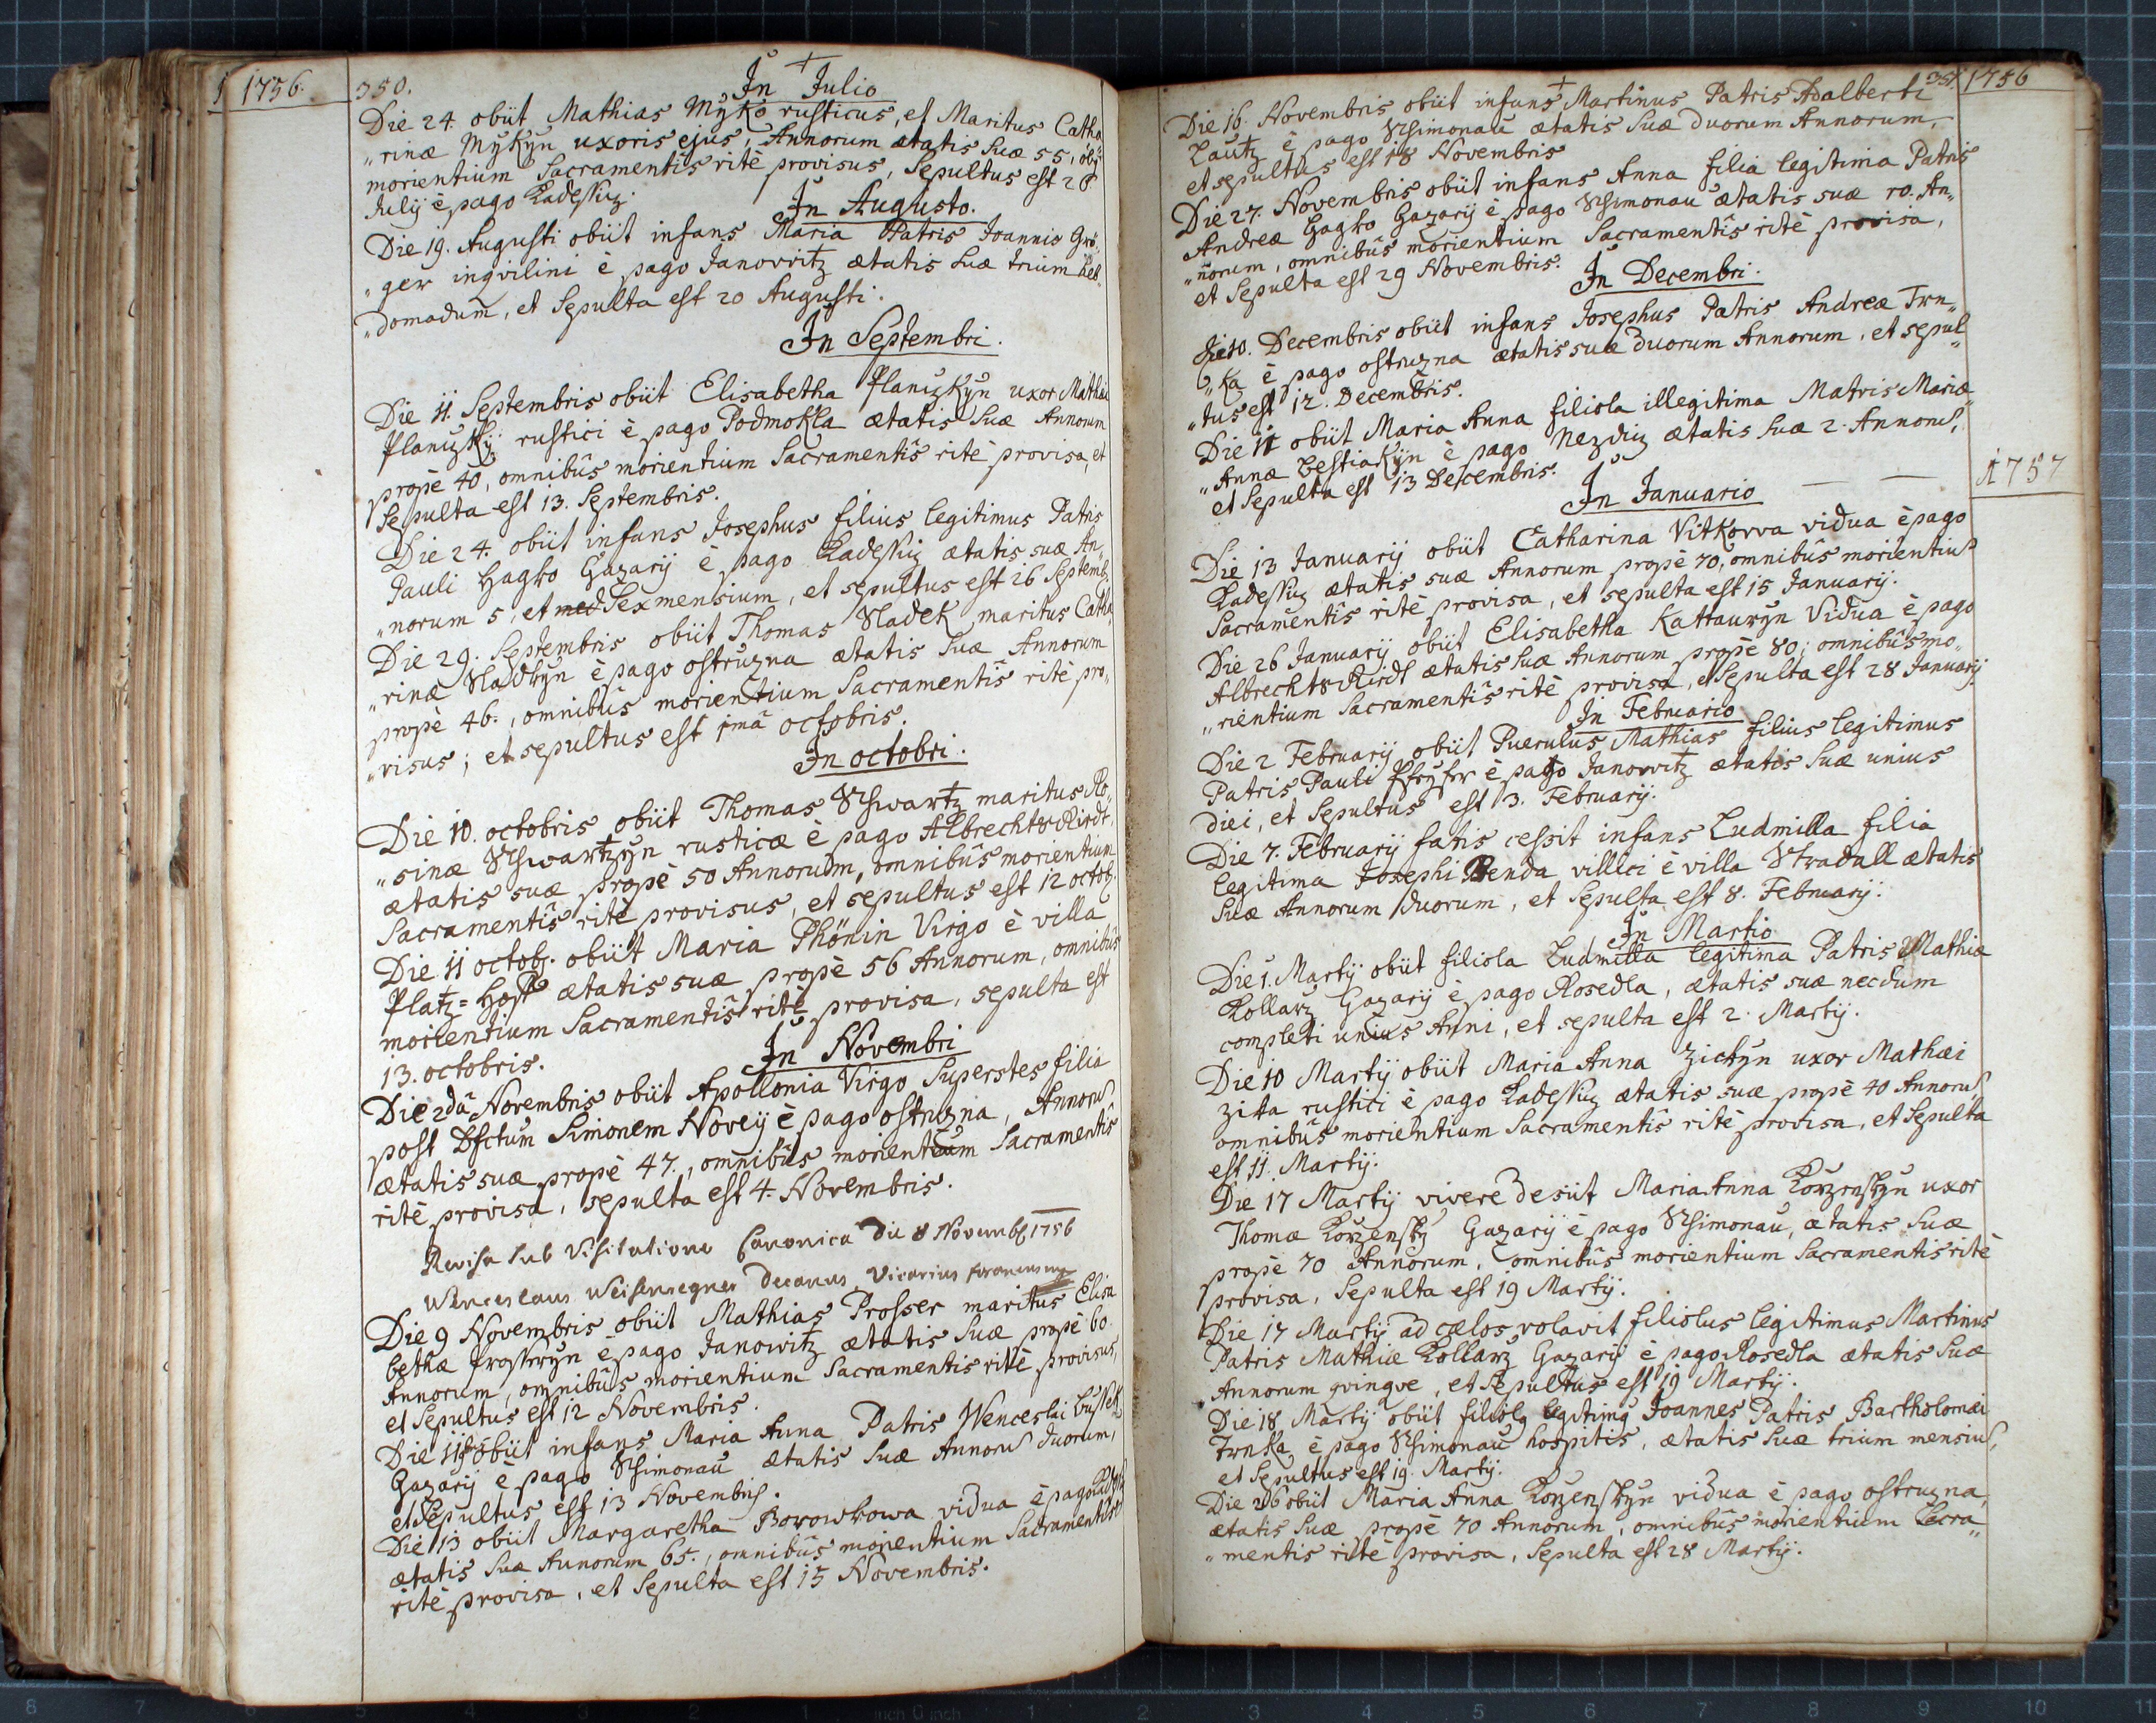 1756.
350.
In Julio
Die 24. obiit Mathias Myko rusticus, et Maritus Catha„
„rinæ Mykyn uxoris ejus, Annorum ætatis suæ 55,
morientium Sacramentis ritè provisus, Sepultus est 26
Julij è pago Kadeschiz.
In Augusto.
Die 19. Augusti obiit infans Maria Patris Joannis Grö„
„ger inqvilini è pago Janowitz ætatis suæ trium heb„
„domadum, et Sepulta est 20 Augusti.
In Septembri.
Die 11. Septembris obiit Elisabetha Planizkyn uxor Mathæi
Planizky rustici è pago Podmokla ætatis suæ Annorum
propè 40, omnibus morientium Sacramentis ritè provisa, et
Sepulta est 13. Septembris.
Die 24. obiit infans Josephus filius legitimus Patris
Pauli Hagko Gazarij è pago Kadeschiz ætatis suæ An„
„norum 5, et med Sexmensium, et sepultus est 26 Septemb.
Die 29. Septembris obiit Thomas Sladek maritus Catha„
„rinæ Sladkyn è pago ostruzna ætatis suæ Annorum
propè 46., omnibus morientium Sacramentis ritè pro„
„visus; et sepultus est 1mâ octobris.
In octobri.
Die 10. octobris obiit Thomas Schwartz maritus Ro„
„sinæ Schwartzyn rusticæ è pago Albrechtsried,
ætatis suæ propè 50 Annorum, omnibus morientium
Sacramentis ritè provisus, et sepultus est 12 octob.
Die 11 octob. obiit Maria Phönin Virgo è villa
Platz=Hoff ætatis suæ propè 56 Annorum, omnibus
morientium Sacramentis ritè provisa, sepulta est
13. octobris.
In Novembri
Die 2dâ Novembris obiit Apollonia Virgo Superstes filia
post Dfctum Simonem Noveij è pago ostruzna, Annoru
ætatis suæ propè 47., omnibus morientium Sacramentis
ritè provisa, sepulta est 4. Novembris.
Revisa sub Visitatione Canonica die 8 Novemb 1756
Wenceslaus Decanus Vicarius foraneus
Die 9 Novembris obiit Mathias Prosser maritus Elisa
bethæ Prosseryn è pago Janowitz ætatis suæ propè 60.
Annorum, omnibus morientium Sacramentis ritè provisus,
et Sepultus est 12 Novembris.
Die 11 obiit infans Maria Anna Patris Wenceslai
Gazarij è pago Schimonau ætatis suæ Annoru duorum,
et Sepultus est 13 Novembris.
Die 13 obiit Margaretha Borowkowa vidua è pago
ætatis suæ Annorum 65., omnibus morientium Sacramentis
ritè provisa, et Sepulta est 15 Novembris.
351. 1756
Die 16. Novembris obiit infans Martinus Patris Adalberti
Lautz è pago Schimonau ætatis suæ duorum Annorum,
et sepultus est 18 Novembris
Die 27. Novembris obiit infans Anna filia legitima Patris
Andreæ Hagko Gazarij è pago Schimonau ætatis suæ 10. An„
„norum, omnibus morientium Sacramentis ritè provisa,
et Sepulta est 29 Novembris.
In Decembri.
Die 10. Decembris obiit infans Josephus Patris Andreæ Trn„
„ka è pago ostruzna ætatis suæ duorum Annorum, et sepul„
„tus est 12. Decembris.
Die 11 obiit Maria Anna filiola illegitima Matris Mariæ
„Annæ Bestiakyn è pago Nezdiz ætatis suæ 2. Annoru,
et Sepulta est 13 Decembris.
1757
In Januario
Die 13 Januarij obiit Catharina Vitkowa vidua è pago
Kadeschiz ætatis suæ Annorum propè 70, omnibus morientiu
Sacramentis ritè provisa, et sepulta est 15 Januarij.
Die 26 Januarij obiit Elisabetha Kattauryn Vidua è pago
Albrechtsried ætatis suæ Annorum propè 80, omnibus mo„
„rientium Sacramentis ritè provisa, et Sepulta est 28 Januarij
In Februario
Die 2 Februarij obiit Puerulus Mathias filius legitimus
Patris Pauli Pfeyfer è pago Janowitz ætatis suæ unius
diei, et Sepultus est 3. Februarij.
Die 7. Februarij fatis cessit infans Ludmilla filia
legitima Josephi Benda villici è villa Stradall ætatis
suæ Annorum duorum, et Sepulta est 8. Februarij.
In Martio
Die 1. Martij obiit filiola Ludmilla legitima Patris Mathiæ
Kollarz Gazarij è pago Rosedla, ætatis suæ necdum
completi unius Anni, et sepulta est 2. Martij.
Die 10 Martij obiit Maria Anna Zickyn uxor Mathæi
Zika rustici è pago Kadeschiz ætatis suæ propè 40 Annoru,
omnibus morientium Sacramentis ritè provisa, et Sepulta
est 11. Martij.
Die 17 Martij vivere desiit Maria Anna Korzenskyn uxor
Thomæ Korzensky Gazarij è pago Schimonau, ætatis suæ
propè 70 Annorum, omnibus morientium Sacramentis ritè
provisa, Sepulta est 19 Martij.
Die 17 Martij ad cælos volavit filiolus legitimus Martinus
Patris Mathiæ Kollarz Gazarij è pago Rosedla ætatis suæ
Annorum qvinqve, et Sepultus est 19 Martij.
Die 18 Martij obiit filiolg legitimg Joannes Patris Bartholomæi
Trnka è pago Schimonau hospitis, ætatis suæ trium mensiu,
et Sepultus est 19. Martij.
Die 26 obiit Maria Anna Korzenskyn vidua è pago ostruzna,
ætatis suæ propè 70 Annorum, omnibus morientium Sacra„
„mentis ritè provisa, Sepulta est 28 Martij.